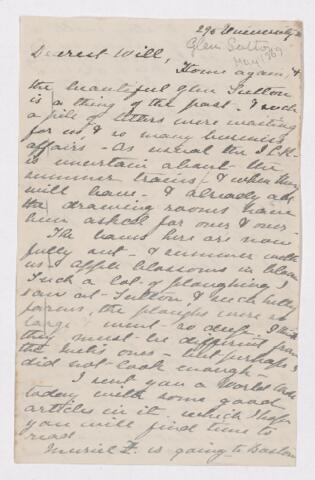 296 University
Glen Sutton
May 1909
Dearest Will,
Home again, &
the beautiful Glen Sutton
is a thing of the past. Such
a pile of letters were waiting
for us & so many business
affairs - As usual the
is uncertain about the
summer trains, & when they
will leave - & already all
the drawing rooms have
been asked for over & over.
The leaves here are now
fully out - & summer with
us & apple blossoms in bloom
Such a lot of ploughing I
saw at Sutton & such
farms, the ploughs were so
large & went so deep. I think
they must be different from
the ones - but perhaps I
did not look enough -
I sent you a Worlds Work
today with some good
articles in it which I hope
you will find time to
read.
Muriel is going to Boston